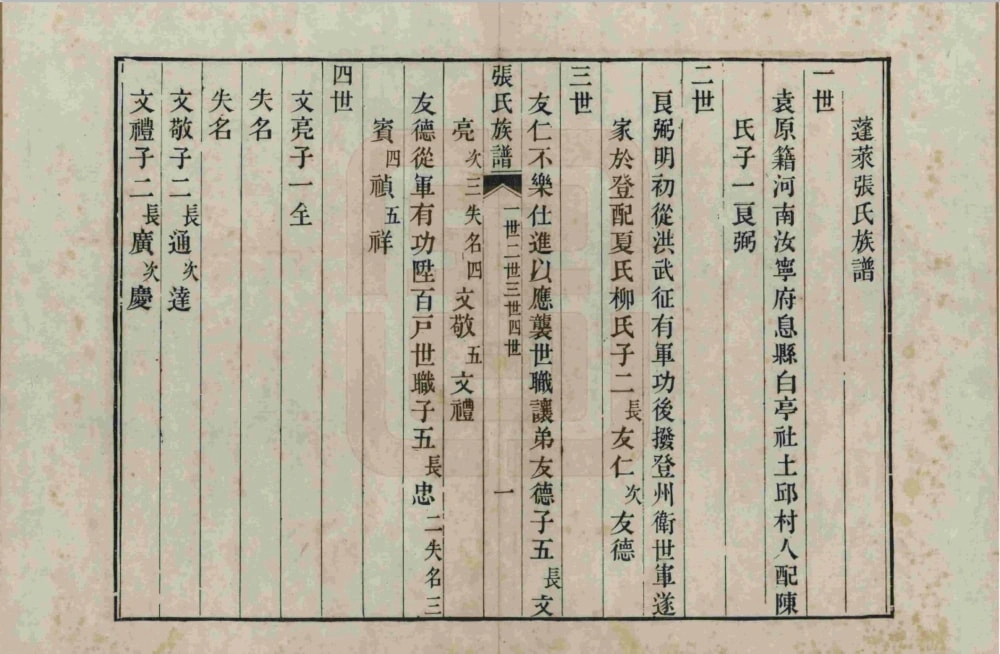 蓬萊張氏族譜
一世
袁原籍河南汝寧府息縣白亭社土邱村人配陳
氏子一良弼
二世
良弼明初從洪武征有軍功後撥登州衛世軍遂
家於登配夏氏柳氏子二長友仁次友德
三世
友仁不樂仕進以應襲世職讓弟友德子五長文
張氏族譜 一世二世三世四世 一
亮次三失名四文敬五文禮
友德從軍有功陞百戶世職子五長忠二失名三
賓四禎五祥
四世
文亮子一全
失名
失名
文敬子二長通次達
文禮子二長廣次慶